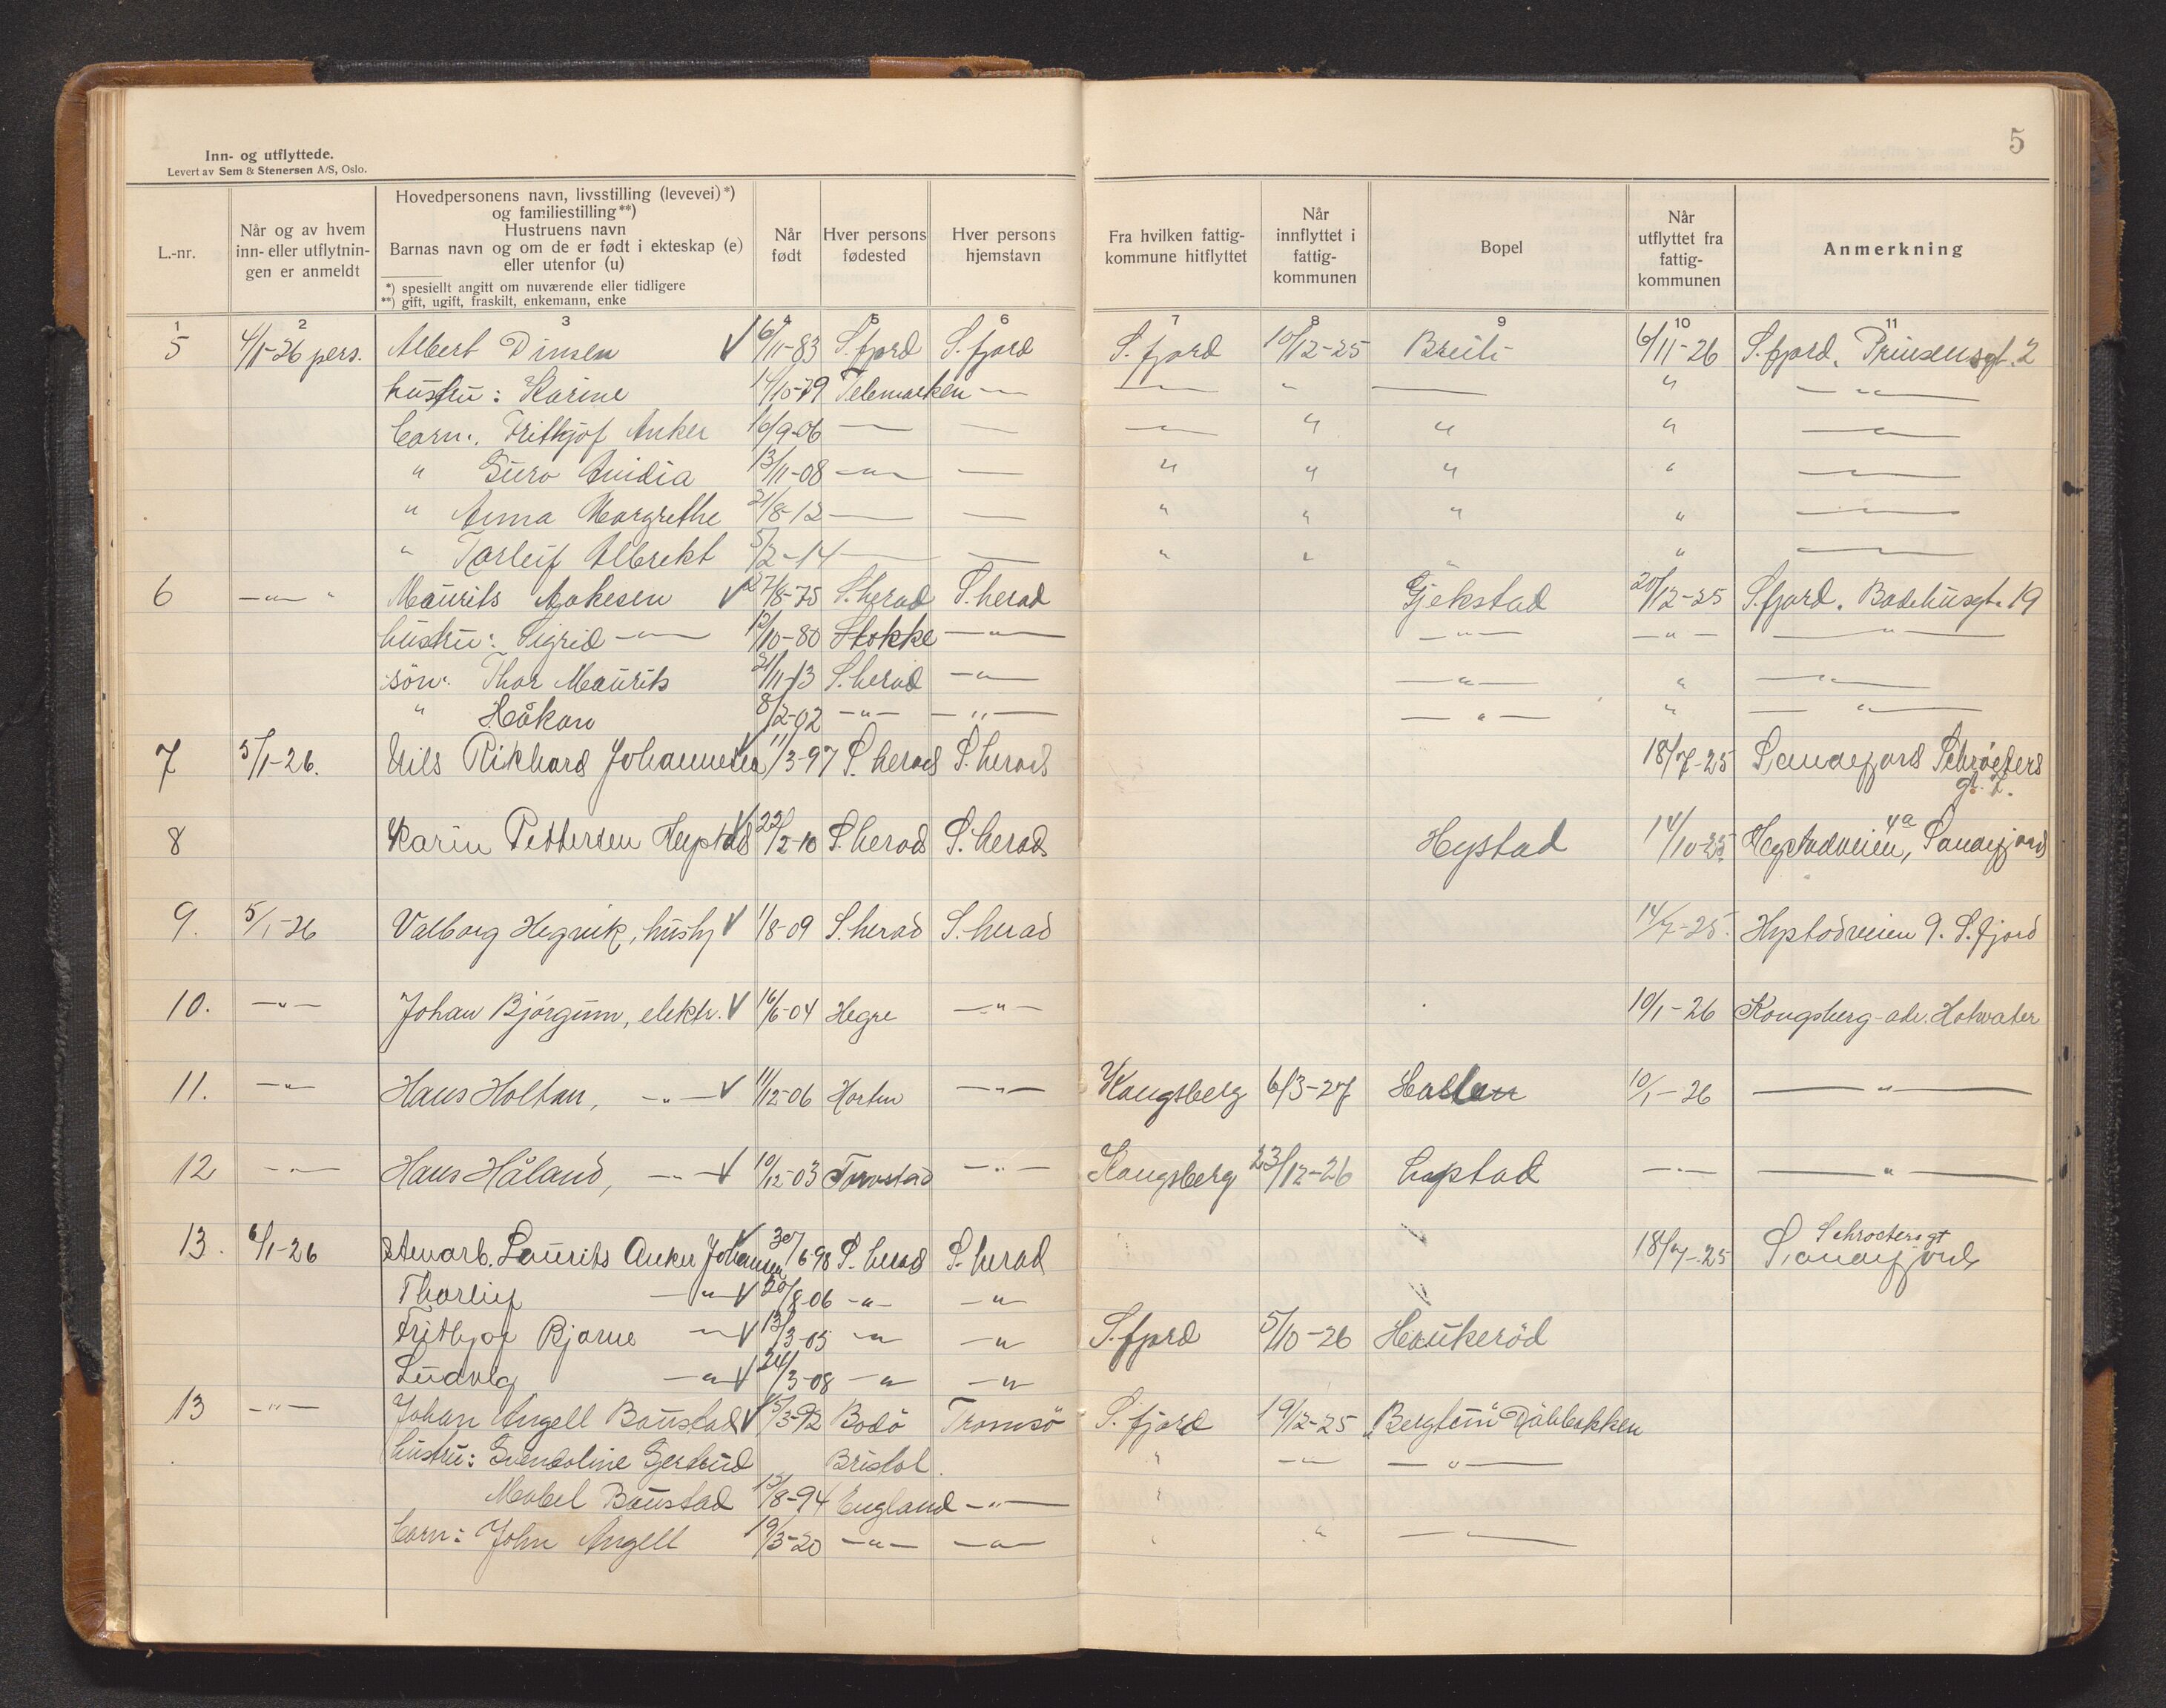 5
Inn- og utflyttede.
Levert av Sem & Stenersen A/S, Oslo.
L.-nr.
Når og av hvem inn- eller utflytnin- gen er anmeldt
Hovedpersonens navn, livsstilling (levevei)*)
og familiestilling**)
Hustruens navn
Barnas navn og om de er født i ekteskap (e)
eller utenfor (u)
*) spesiellt angitt om nuværende eller tidligere
**) gift, ugift, fraskilt, enkemann, enke
Når født
Hver persons fødested
Hver persons hjemstavn
Fra hvilken fattig- kommune hitflyttet
Når innflyttet i fattig- kommunen
Bopel
Når utflyttet fra fattig- kommunen
Anmerkning
1 2 3 4 5 6 7 8 9 10 11
5 4/1-26 pers. Albert Dinsen 6/11-83 S.fjord S.fjord S.fjord 10/12-25 Breili 6/11-26 S.fjord. Prinsensgt. 2
hustru: Karine 14/10-79 Telemarken -"- -"- " — " -"-
barn: Frithjof Anker 16/9-06 — — -"- " " " -"-
" Guro Anidia 13/11-08 -"- — " " " " -"-
" Anna Margrethe 21/8-12 — — " " " " -"-
" Torleif Albrekt 5/2-14 — — " " " " -"-
6 -"- " Maurits Aakesen 27/8-75 S.herad S.herad Gjekstad 20/12-25 S.fjord. Badehusgt. 19
hustru: Sigrid -"- 12/10-80 Stokke -"- -"- -"- -"-
søn: Thor Maurits 21/11-13 S.herad -"- -"- " -"-
" Håkon 8/2-02 -"- -"- -"- " -"-
7 5/1-26. Nils Rikhard Johannesen 11/3-97 S.herad S.herad 18/7-25 Sandefjord Schrøeters
gt. 7.
8 Karin Pettersen Hystad 22/2-10 S.herad S.herad Hystad 14/10-25 Hystadveien 4a, Sandefjord
9. 5/1-26 Valborg Hegvik, hushj 1/8-09 S.herad S.herad 14/7-25. Hystadveien 9. S.fjord
10. -"- Johan Bjørgum, elektr. 16/6-04 Hegre -"- 10/1-26 Kongsberg - adr. Hotvater
11. -"- Hans Holtan, -"- 11/12-06 Horten -"- Kongsberg 6/3-27 Hallen 10/1-26 -"-
12 -"- Hans Håland, -"- 10/12-03 -"- Kongsberg 23/12-26 -"- -"-
13. 6/1-26 Stuarb. Laurits Anker Johansen 30/6-98 S.herad S.herad 18/7-25 Schroetersgt
Sandefjord
Thorleif -"- 20/8-06 -"- -"-
Frithjof Bjarne -"- 13/3-05 -"- -"- S.fjord 5/10-26 Haukerød
Ludvig -"- 24/3-08 -"- -"-
13 -"- Johan Angell Baustad 15/3-92 Bodø Tromsø S.fjord 19/12-25 "Bergheim" Råbbakken
hustru: Gvendoline Gertrud Bristol. " -"- -"-
Mabel Baustad 15/8-94 England -"- "
barn: John Angell 19/3-20 -"- -"- " " -"-